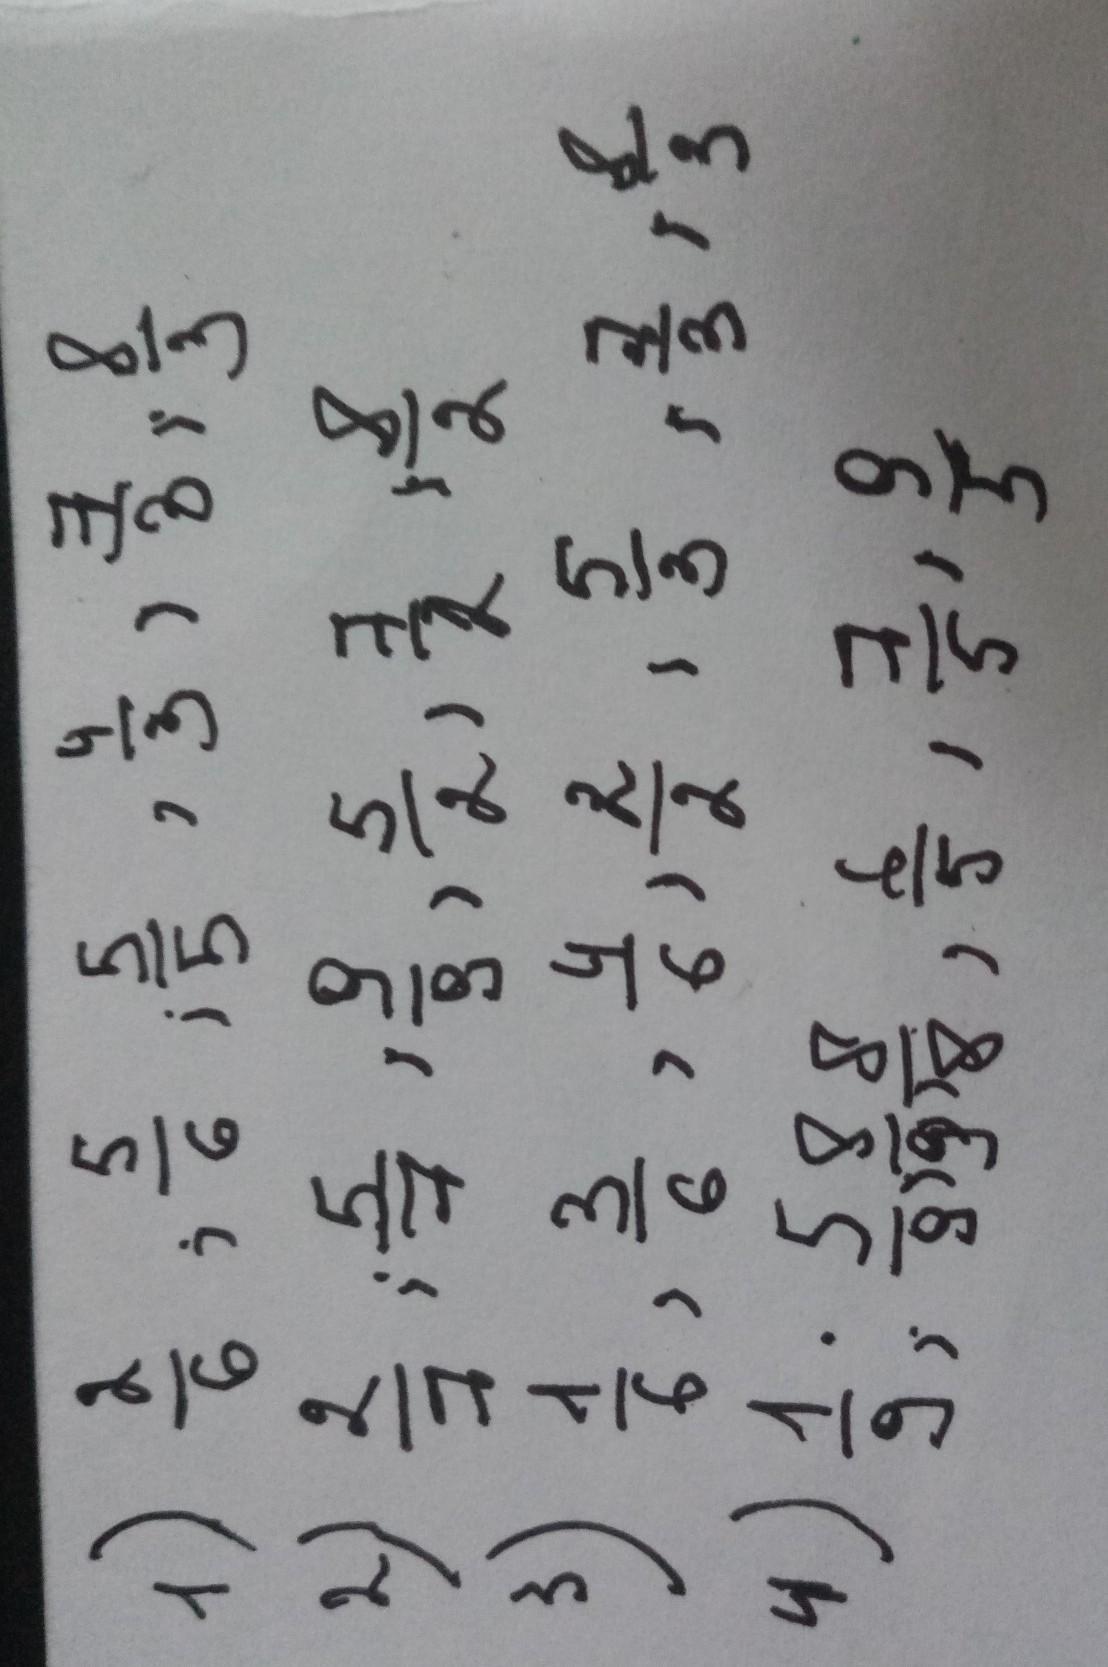 1) 2/6; 5/6; 5/5, 4/3, 7/3; 8/3
2) 2/7; 5/7, 9/8, 5/2, 7/2, 8/2
3) 1/6, 3/6, 4/6, 2/2, 5/3, 7/3, 8/3
4) 1/9; 5/9, 8/9, 8/8, 6/5, 7/5, 9/5